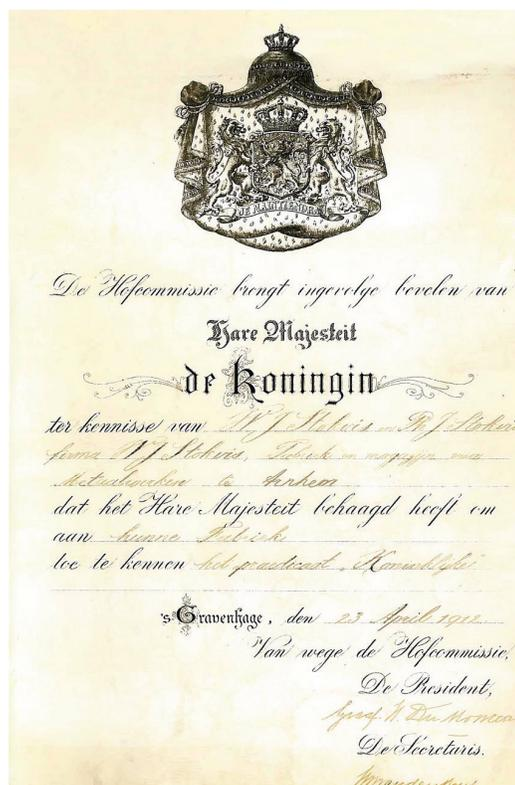 JE MAINTIENDRAI
De Hofcommissie brengt ingevolge bevelen van
Hare Majesteit
de Koningin
ter kennisse van W J Stokvis en Ph J Stokvis
firma W J Stokvis, Fabriek en magazijn van
Metaalwerken te Arnhem
dat het Hare Majesteit behaagd heeft om
aan hunne Fabriek
toe te kennen het praedicaat "Koninklijke"
's Gravenhage, den 23 April 1912
Van wege de Hofcommissie,
De President,
Graaf Du Monceau
De Secretaris.